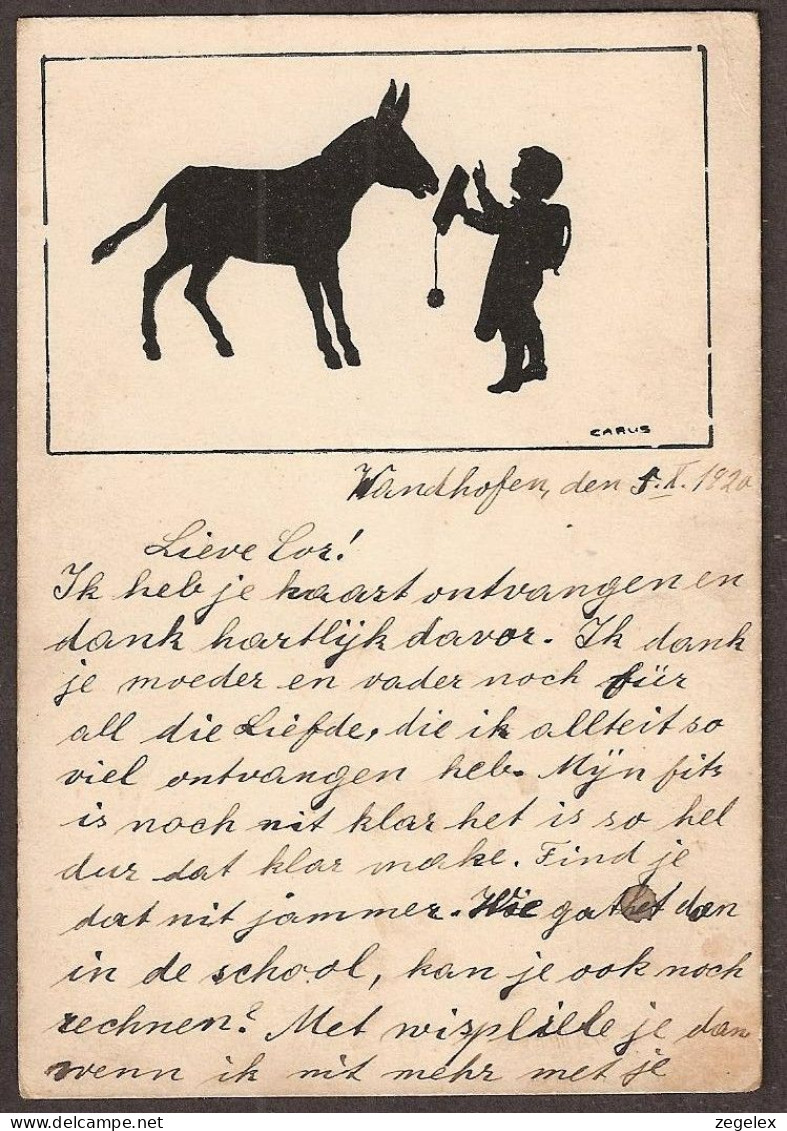 CARUS
Wandhofen, den 5.X.1920
Lieve Cor!
Ik heb je kaart ontvangen en
dank hartlijk davor. Ik dank
je moeder en vader noch für
all die Liefde, die ik allteit so
viel ontvangen heb. Mijn fits
is noch nit klar het is so hel
dur dat klar make. Find je
dat nit jammer. Wie gat het dan
in de school, kan je ook noch
rechnen? Met wi speelle je dan
wenn ik nit mehr met je
zegelex